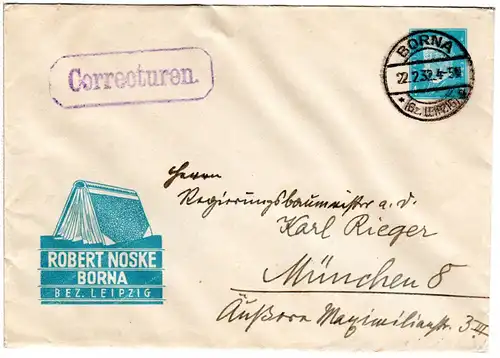 Correcturen.
BORNA
22.2.32.4-5N
* (BZ. LEIPZIG)
Herrn
Regierungsbaumeister a. d.
Karl Rieger
München 8
Äußere Maximilianstr. 3 III
ROBERT NOSKE
BORNA
BEZ. LEIPZIG